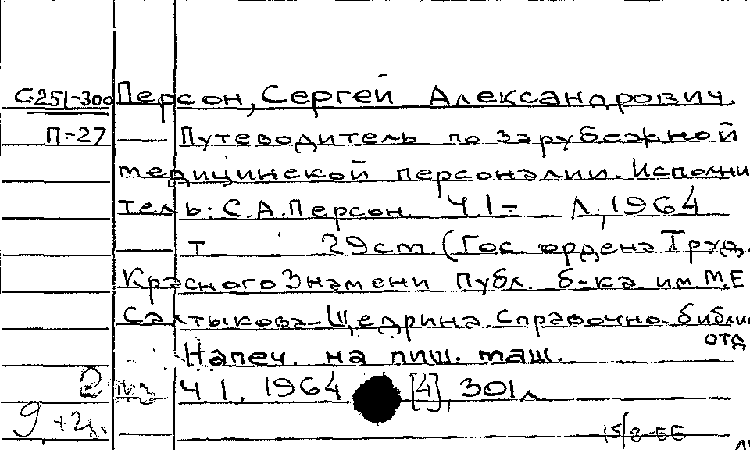 С251-300 Персон, Сергей Александрович.
П-27 Путеводитель по зарубежной
медицинской персоналии. Исполни
тель: С.А. Персон. Ч 1- Л., 1964
т 29 cm. (Гос. ордена Труд.
Красного Знамени Публ. б-ка им. М.Е
Салтыкова-Щедрина Справочно-библи
отд
Напеч. на пиш. маш.
2 Ч 1. 1964 [4], 301 л
9 +2д.